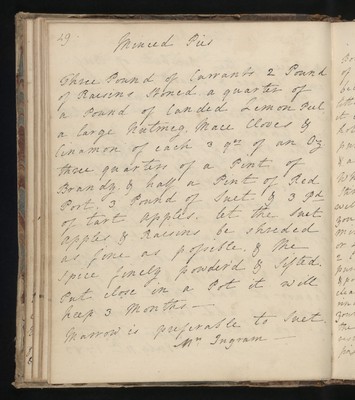 29
Minced Pies
Three Pound of Currants 2 Pound
of Raisins Stoned a quarter of
a Pound of Canded Lemon Peel
a large Nutmeg, Mace Cloves &
Cinamon of each 3 qrs of an Oz
three quarters of a Pint of
Brandy, & half a Pint of Red
Port, 3 Pound of Suet & 3 Pd
of tart apples, let the Suet
Apples & Raisins be shreded
as fine as possible, & the
Spice finely powder'd & Sifted.
Put close in a Pot it will
keep 3 Months —
Marrow is preferable to Suet
Mrs Ingram —